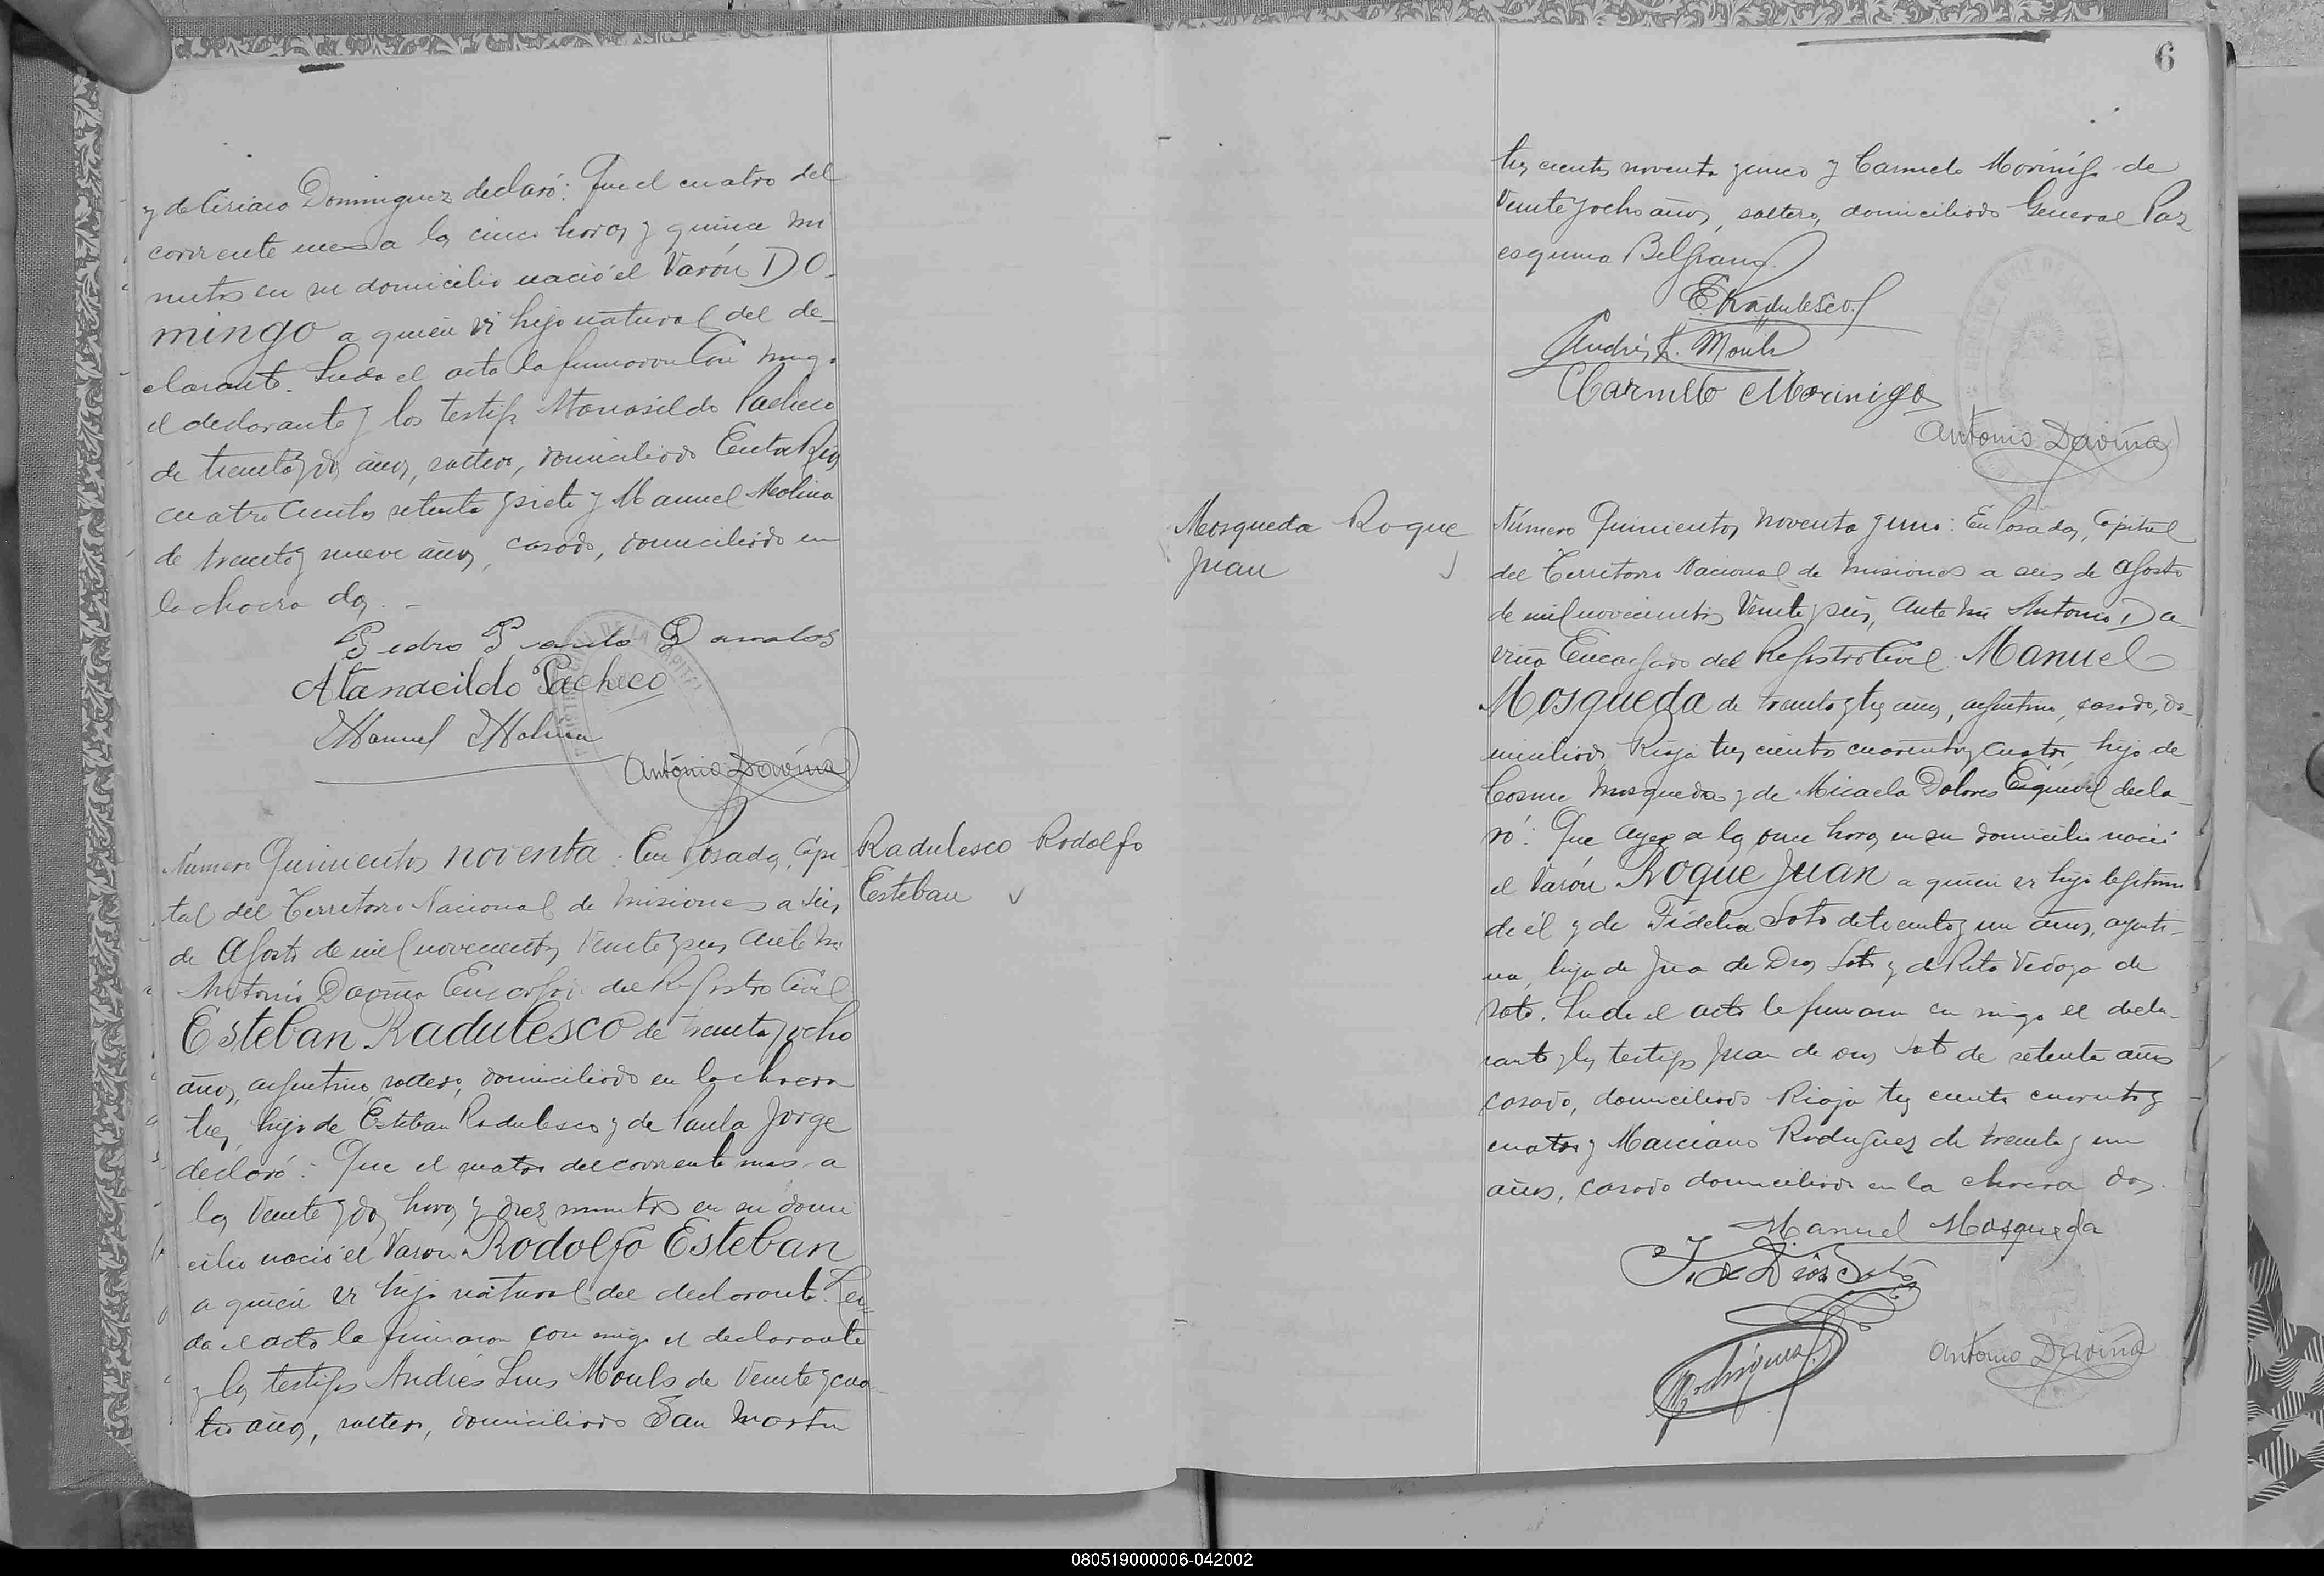 y de Ciriaca Dominguez declaró: Que el cuatro del
corriente mes a las cinco horas y quince mi
nutos en su domicilio nació el Varón DO-
mingo a quien es hijo natural del de-
clarante. Leida el acta la firmaron con migo
el declarante y los testigos Atanasildo Pacheco
de treinta y dos años, soltero, domiciliado Entre Rios
cuatrocientos setenta y siete y Manuel Molina
de treinta y nueve años, casado, domiciliado en
la chacra dos. -
Pedro Pablo Davalos
Atanacildo Pacheco
Manuel Molina
Antonio Daviña
Número Quinientos noventa: En Posadas, Capi
tal del Territorio Nacional de Misiones a seis
de Agosto de mil novecientos Veinte y seis ante mi
Antonio Daviña Encargado del Registro Civil
Esteban Radulesco de treinta y ocho
años, argentino, soltero, domiciliado en la chacra
tres, hijo de Esteban Radulesco y de Paula Jorge
declaró: Que el cuatro del corriente mes a
las Veinte y dos horas y diez minutos en su domi
cilio nació el Varon Rodolfo Esteban
a quien es hijo natural del declarante. Lei-
da el acta la firmaron con migo el declarante
y los testigos Andrés Luis Mouls de Veinte y cua-
tro años, soltero, domiciliado San Martin
Radulesco Rodolfo
Esteban
6
tres cientos noventa y cinco y Carmelo Morinigo de
Veinte y ocho años, soltero, domiciliado General Paz
esquina Belgrano.
E. Radulesco
Andrés L. Mouls
Carmelo Morinigo
Antonio Daviña
Mosqueda Roque
Juan
Número Quinientos noventa y uno: En Posadas, Capital
del Territorio Nacional de Misiones a seis de Agosto
de mil novecientos Veinte y seis, ante mi Antonio Da
viña Encargado del Registro Civil Manuel
Mosqueda de treinta y tres años, argentino, casado, do-
miciliado Rioja tres cientos cuarenta y cuatro, hijo de
Cosme Mosqueda y de Micaela Dolores Esquivel decla-
ró: Que ayer a las once horas en su domicilio nació
el Varón Roque Juan a quien es hijo legitimo
de él y de Fidelia Soto de treinta y un años, argenti-
na, hija de Juan de Dios Soto y de Rita Vedoya de
Soto. Leida el acta la firmaron con migo el decla-
rante y los testigos Juan de Dios Soto de setenta años
casado, domiciliado Rioja tres cientos cuarenta y
cuatro y Marciano Rodriguez de treinta y un
años, casado domiciliado en la chacra dos.
Manuel Mosqueda
J. de Dios Soto
M Rodriguez
Antonio Daviña
080519000006-042002